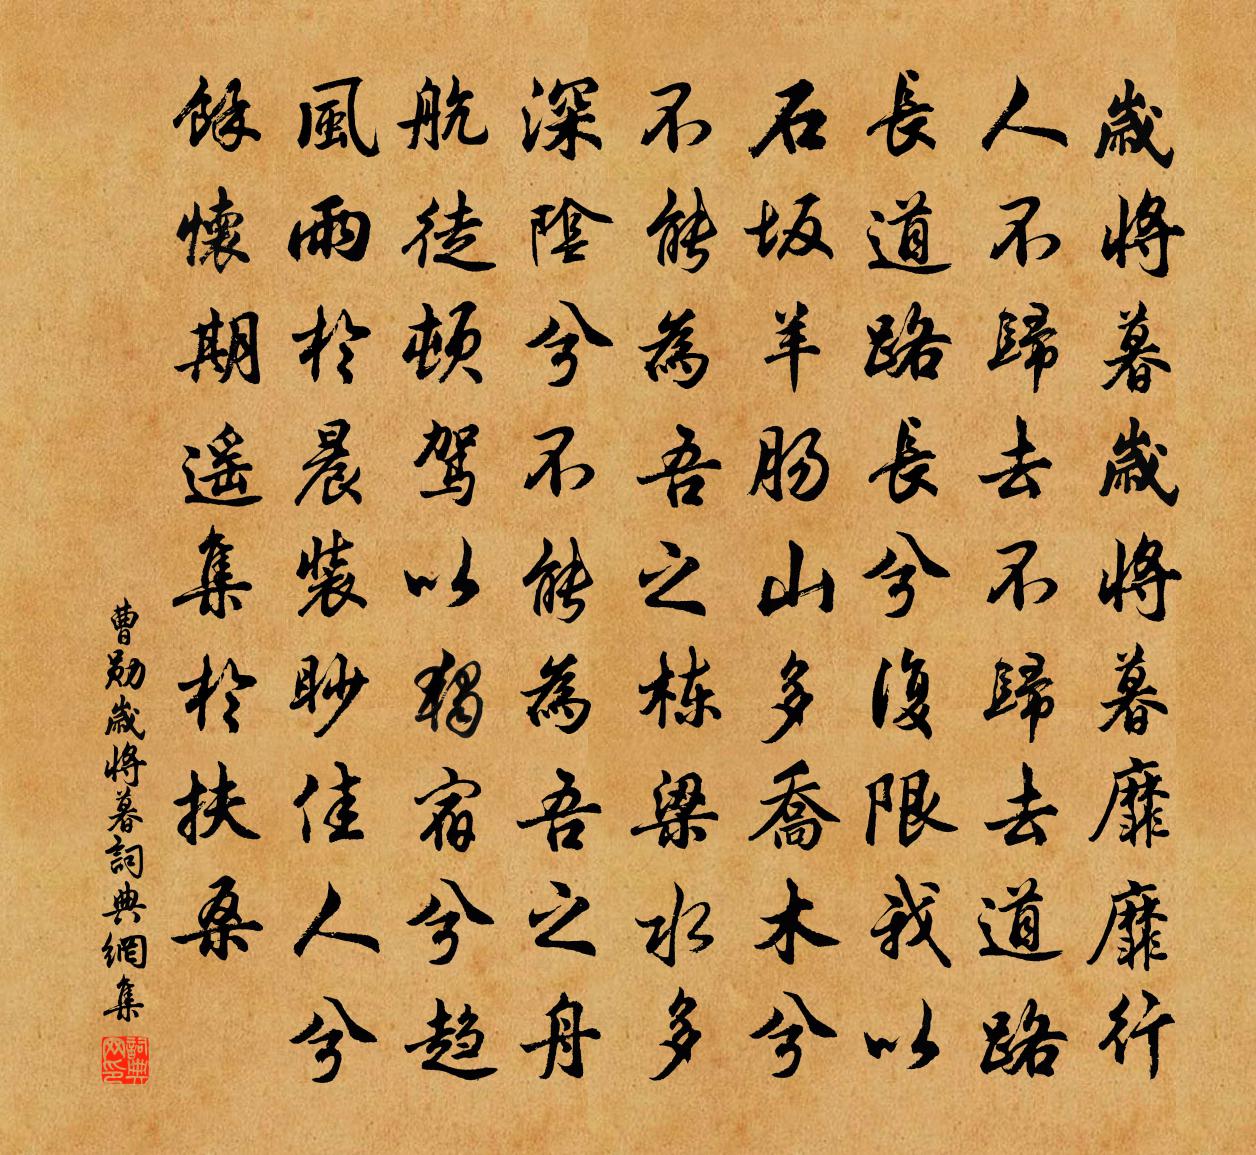 歲將暮歲將暮靡靡行
人不歸去不歸去道路
長道路長兮復限我以
石坂羊腸山多喬木兮
不能為吾之棟梁水多
深陰兮不能為吾之舟
航徒頓駕以獨宿兮趨
風雨於晨裝眇佳人兮
餘懷期遥集於扶桑
曹勛歲將暮詞典網集
詞典网印